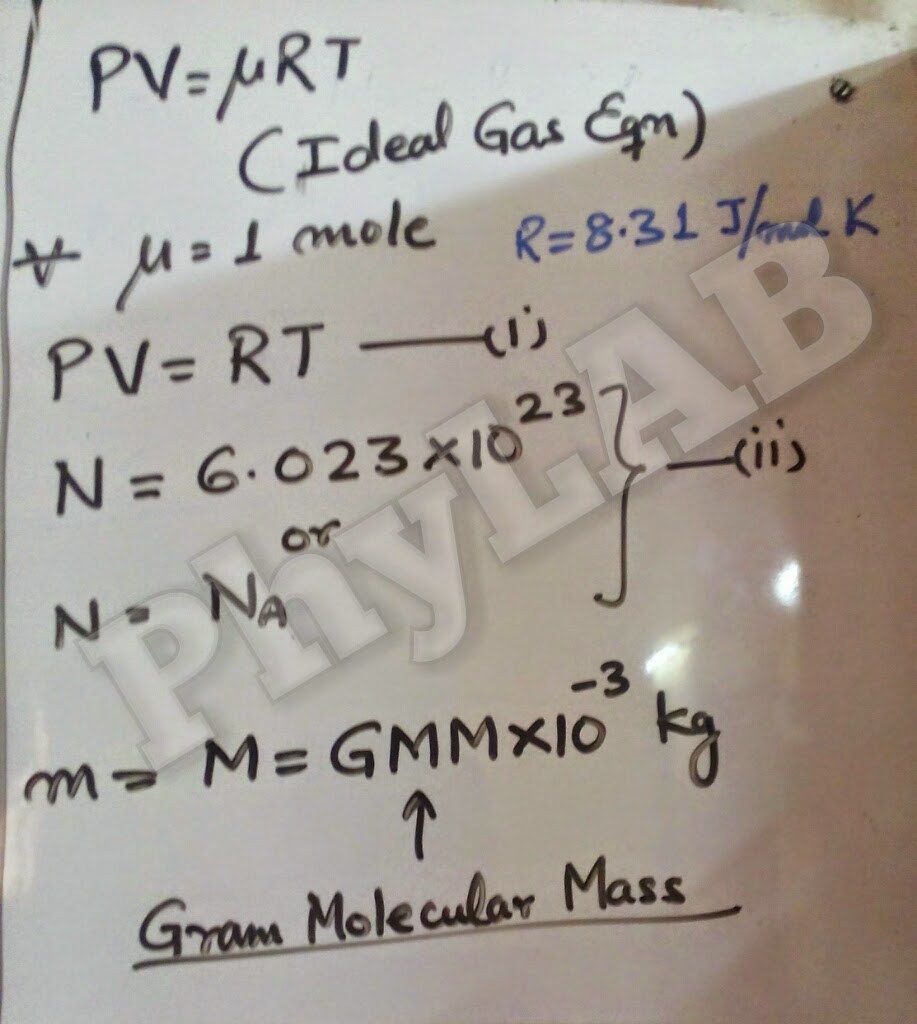 PV=μRT
(Ideal Gas Eqn)
∀ μ=1 mole R=8.31 J/mol K
PV=RT —(i)
N=6.023×10²³
or
N=N_A } —(ii)
m=M=GMM×10⁻³ kg
↑
Gram Molecular Mass
PhyLAB